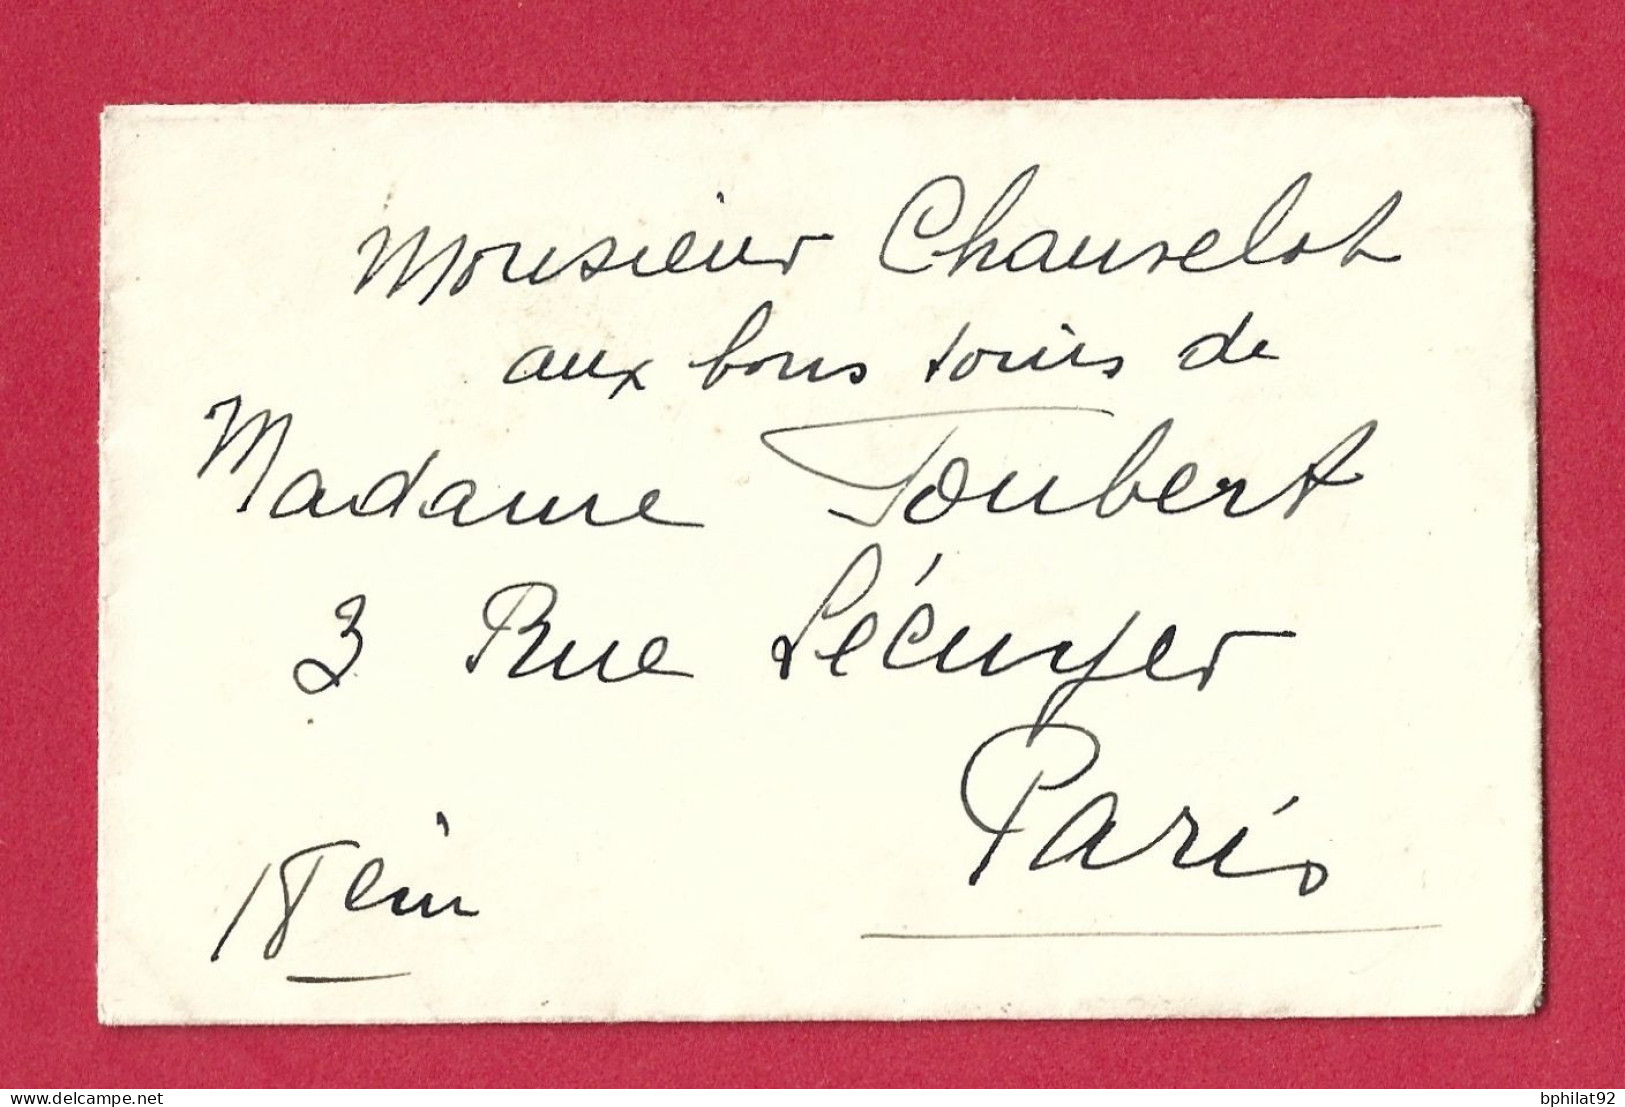 Monsieur Chauvelot
aux bons soins de
Madame Joubert
3 Rue Lécuyer
Paris
18eme
bphilat92